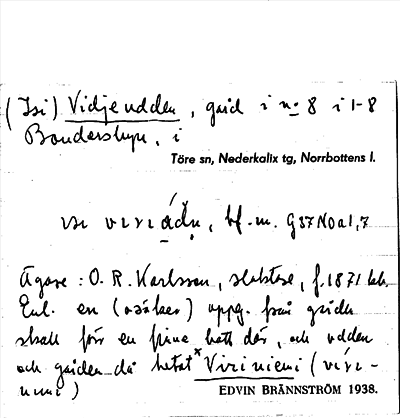 (Isi) Vidjeudden, gård i nº 8 i 1-8
Bondersbyn, i
Töre sn, Nederkalix tg, Norrbottens l.
G 37 N0a1,7
Ägare: O. R. Karlsson, slaktare, f. 1871
Enl. en (osäker) uppg. från gården
skall förr en finne bott där, och udden
och gården då hetat *Viriniemi (viri-
niemi)
EDVIN BRÄNNSTRÖM 1938.